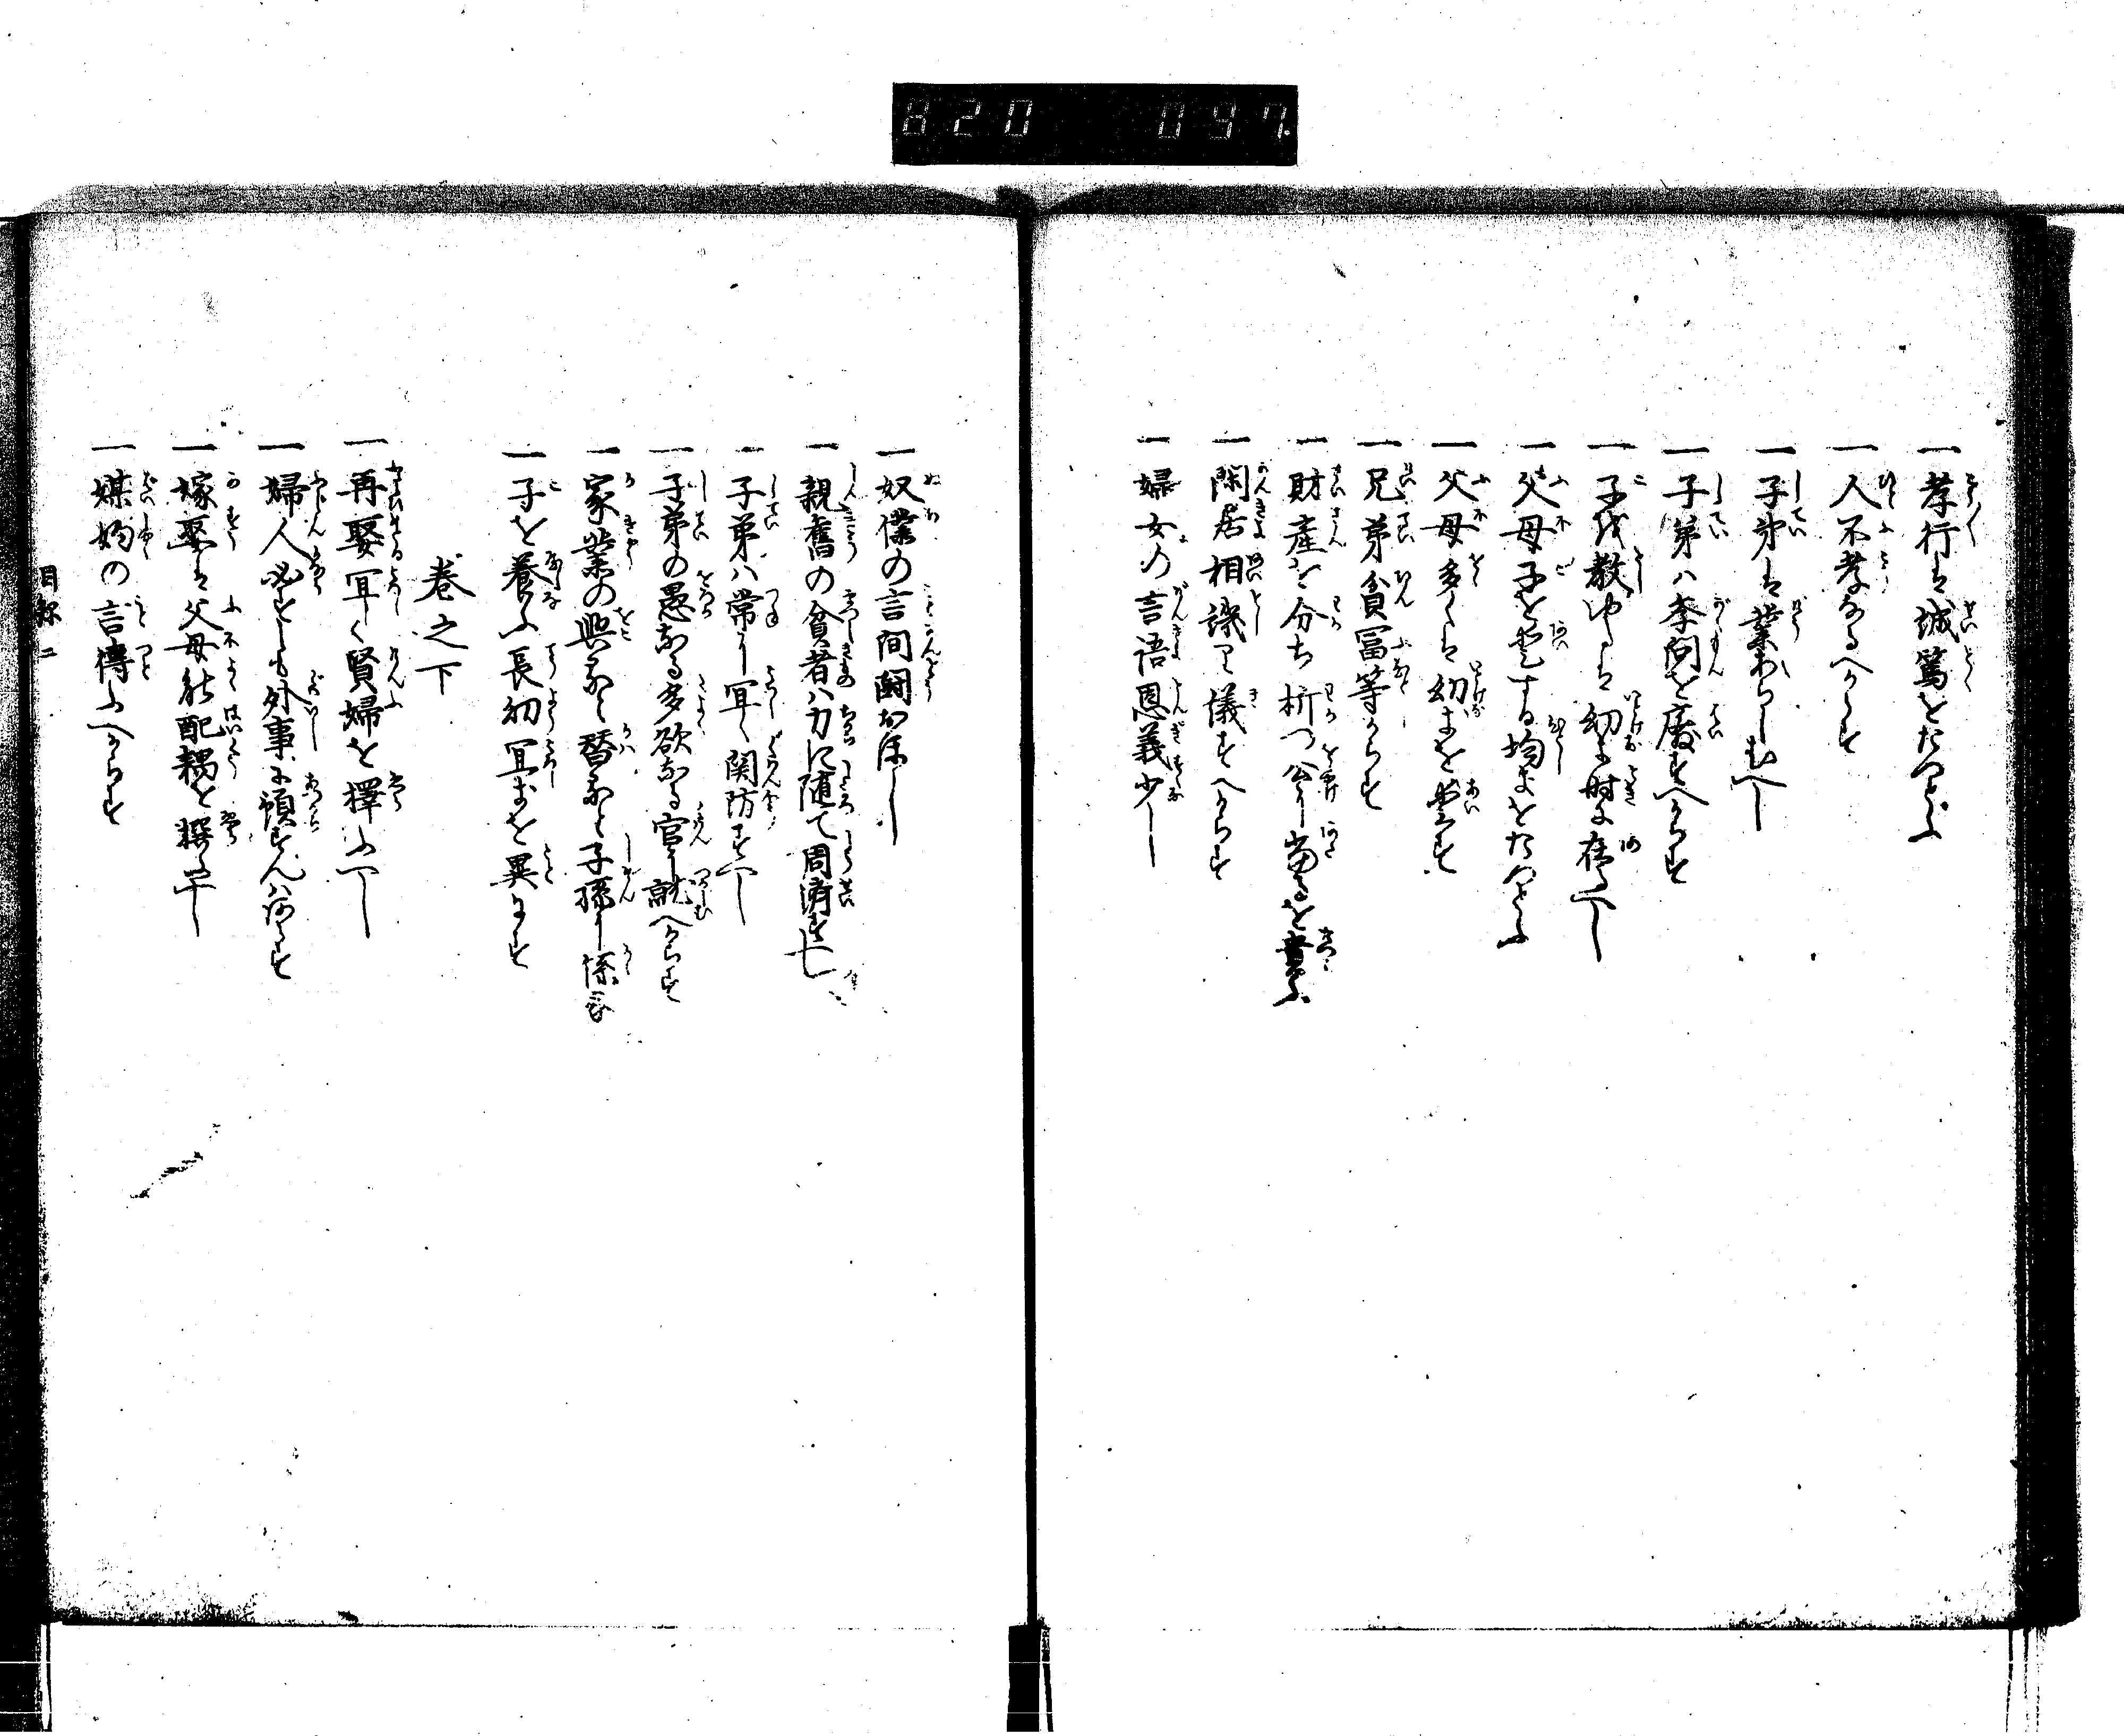 820 097.
一孝行は誠篤をたつとふ
一人不孝なるへからす
一子弟は業あらしむへし
一子弟ハ学問を廃すへからす
一子を教ゆるは幼き時に在へし
一父母子を愛する均きをたつとふ
一父母多くは幼きを愛す
一兄弟貧冨等からす
一財産を分ち析つ公に当るを貴ふ
一閑居相譲り儀すへからす
一婦女の言語恩義少し
一奴僕の言間闘おほし
一親舊の貧者ハ力に随て周済すへし
一子弟ハ常に宜く関防すへし
一子弟の愚なる多欲なる官に就へからす
一家業の興るも替るも子孫に係る
一子を養ふ長初宜きを異にす
巻之下
一再娶宜く賢婦を擇ふへし
一婦人必すしも外事に預すんハあらす
一嫁娶は父母能配耦を擇へし
一媒妁の言信ふへからす
目録 二